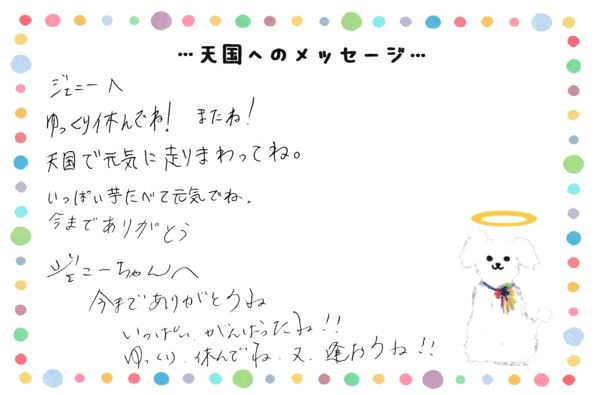 …天国へのメッセージ…
ジェニーへ
ゆっくり休んでね! またね!
天国で元気に走りまわってね。
いっぱい芋たべて元気でね。
今までありがとう
ジェニーちゃんへ
今までありがとうね
いっぱい がんばったね!!
ゆっくり 休んでね 又 逢おうね!!